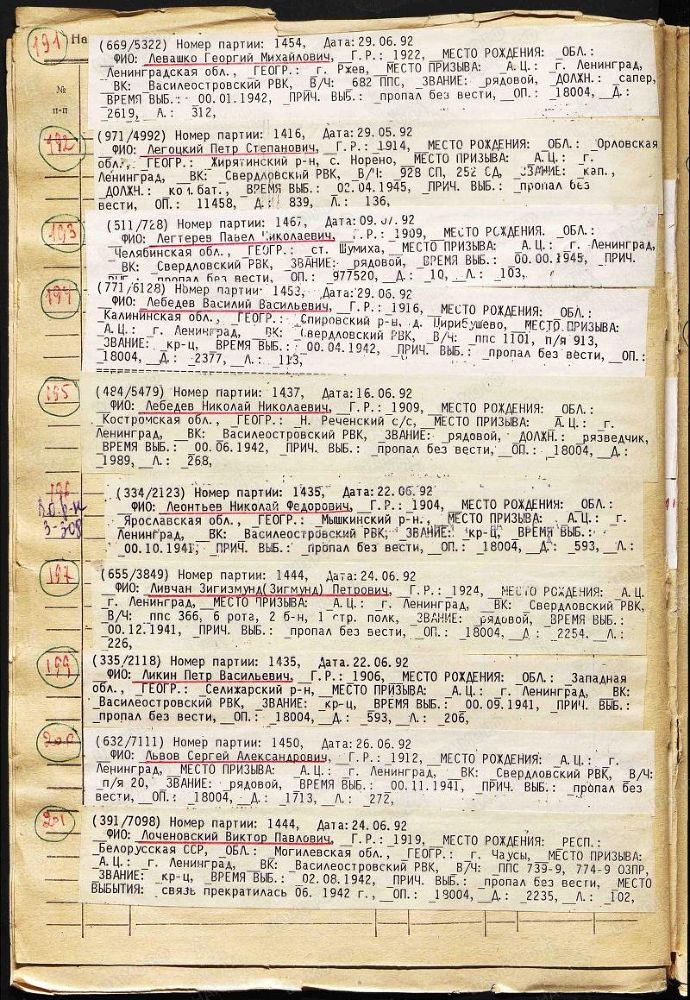 191 На
№
п-п
(669/5322) Номер партии: 1454, Дата:29.06.92
ФИО: Левашко Георгий Михайлович, _Г.Р.: 1922, _МЕСТО РОЖДЕНИЯ: _ОБЛ.:
_Ленинградская обл., _ГЕОГР.: _г. Ржев, _МЕСТО ПРИЗЫВА: _А.Ц.: _г. Ленинград,
_ВК: _Василеостровский РВК, _В/Ч: _682 ППС, _ЗВАНИЕ: _рядовой, _ДОЛЖН.: _сапер,
_ВРЕМЯ ВЫБ.: _00.01.1942, _ПРИЧ. ВЫБ.: _пропал без вести, _ОП.: _18004, _Д.:
_2619, _Л.: _312,
192
(971/4992) Номер партии: 1416, Дата:29.05.92
ФИО: _Легоцкий Петр Степанович, _Г.Р.: _1914, _МЕСТО РОЖДЕНИЯ: _ОБЛ.: _Орловская
обл., _ГЕОГР.: _Жирятинский р-н, с. Норено, _МЕСТО ПРИЗЫВА: _А.Ц.: _г.
Ленинград, _ВК: _Свердловский РВК, _В/Ч: _928 СП, 252 СД, _ЗВАНИЕ: _кап.,
_ДОЛЖН.: _ком.бат., _ВРЕМЯ ВЫБ.: _02.04.1945, _ПРИЧ. ВЫБ.: _пропал без
вести, _ОП.: 11458, _Д.: _839, _Л.: _136,
193
(511/728) Номер партии: 1467, Дата:09.07.92
ФИО: _Легтерев Павел Николаевич, _Г.Р.: _1909, _МЕСТО РОЖДЕНИЯ: _ОБЛ.:
_Челябинская обл., _ГЕОГР.: _ст. Шумиха, _МЕСТО ПРИЗЫВА: _А.Ц.: _г. Ленинград,
_ВК: _Свердловский РВК, _ЗВАНИЕ: _рядовой, _ВРЕМЯ ВЫБ.: _00.00.1945, _ПРИЧ.
ВЫБ.: _пропал без вести, _ОП.: _977520, _Д.: _10, _Л.: _103,
194
(771/6128) Номер партии: 1453, Дата:29.06.92
ФИО: _Лебедев Василий Васильевич, _Г.Р.: _1916, _МЕСТО РОЖДЕНИЯ: _ОБЛ.:
_Калининская обл., _ГЕОГР.: _Спировский р-н, д. Цирибушево, _МЕСТО ПРИЗЫВА:
_А.Ц.: _г. Ленинград, _ВК: _Свердловский РВК, _В/Ч: _ппс 1101, п/я 913,
_ЗВАНИЕ: _кр-ц, _ВРЕМЯ ВЫБ.: _00.04.1942, _ПРИЧ. ВЫБ.: _пропал без вести, _ОП.:
_18004, _Д.: _2377, _Л.: _113,
195
(484/5479) Номер партии: 1437, Дата:16.06.92
ФИО: _Лебедев Николай Николаевич, _Г.Р.: _1909, _МЕСТО РОЖДЕНИЯ: _ОБЛ.:
_Костромская обл., _ГЕОГР.: _Н. Реченский с/с, _МЕСТО ПРИЗЫВА: _А.Ц.: _г.
Ленинград, _ВК: _Василеостровский РВК, _ЗВАНИЕ: _рядовой, _ДОЛЖН.: _рязведчик,
_ВРЕМЯ ВЫБ.: _00.06.1942, _ПРИЧ. ВЫБ.: _пропал без вести, _ОП.: _18004, _Д.:
_1989, _Л.: _268,
196
3-308
(334/2123) Номер партии: 1435, Дата:22.06.92
ФИО: _Леонтьев Николай Федорович, _Г.Р.: _1904, _МЕСТО РОЖДЕНИЯ: _ОБЛ.:
_Ярославская обл., _ГЕОГР.: _Мышкинский р-н., _МЕСТО ПРИЗЫВА: _А.Ц.: _г.
Ленинград, _ВК: _Василеостровский РВК, _ЗВАНИЕ: _кр-ц, _ВРЕМЯ ВЫБ.:
_00.10.1941, _ПРИЧ. ВЫБ.: _пропал без вести, _ОП.: _18004, _Д.: _593, _Л.:
197
(655/3849) Номер партии: 1444, Дата:24.06.92
ФИО: _Ливчан Зигизмунд(Зигмунд) Петрович, _Г.Р.: _1924, _МЕСТО РОЖДЕНИЯ: _А.Ц.
_г. Ленинград, _МЕСТО ПРИЗЫВА: _А.Ц.: _г. Ленинград, _ВК: _Свердловский РВК,
_В/Ч: _ппс 366, 6 рота, 2 б-н, 1 стр. полк, _ЗВАНИЕ: _рядовой, _ВРЕМЯ ВЫБ.:
_00.12.1941, _ПРИЧ. ВЫБ.: _пропал без вести, _ОП.: _18004, _Д.: _2254, _Л.:
_226,
199
(335/2118) Номер партии: 1435, Дата.22.06.92
ФИО: _Ликин Петр Васильевич, _Г.Р.: _1906, _МЕСТО РОЖДЕНИЯ: _ОБЛ.: _Западная
обл., _ГЕОГР.: _Селижарский р-н, _МЕСТО ПРИЗЫВА: _А.Ц.: _г. Ленинград, _ВК:
_Василеостровский РВК, _ЗВАНИЕ: _кр-ц, _ВРЕМЯ ВЫБ.: _00.09.1941, _ПРИЧ. ВЫБ.:
_пропал без вести, _ОП.: _18004, _Д.: _593, _Л.: _206,
200
(632/7111) Номер партии: 1450, Дата:26.06.92
ФИО: _Львов Сергей Александрович, _Г.Р.: _1912, _МЕСТО РОЖДЕНИЯ: _А.Ц.: _г.
Ленинград, _МЕСТО ПРИЗЫВА: _А.Ц.: _г. Ленинград, _ВК: _Свердловский РВК, _В/Ч:
_п/я 20, _ЗВАНИЕ: _рядовой, _ВРЕМЯ ВЫБ.: _00.11.1941, _ПРИЧ. ВЫБ.: _пропал без
вести, _ОП.: _18004, _Д.: _1713, _Л.: _272,
201
(391/7098) Номер партии: 1444, Дата:24.06.92
ФИО: _Лоченовский Виктор Павлович, _Г.Р.: _1919, _МЕСТО РОЖДЕНИЯ: _РЕСП.:
_Белорусская ССР, _ОБЛ.: _Могилевская обл., _ГЕОГР.: _г. Чаусы, _МЕСТО ПРИЗЫВА:
_А.Ц.: _г. Ленинград, _ВК: _Василеостровский РВК, _В/Ч: _ППС 739-9, 774-9 ОЗПР,
_ЗВАНИЕ: _кр-ц, _ВРЕМЯ ВЫБ.: _02.08.1942, _ПРИЧ. ВЫБ.: _пропал без вести, _МЕСТО
ВЫБЫТИЯ: _связь прекратилась 06. 1942 г., _ОП.: _18004, _Д.: _2235, _Л.: _102,